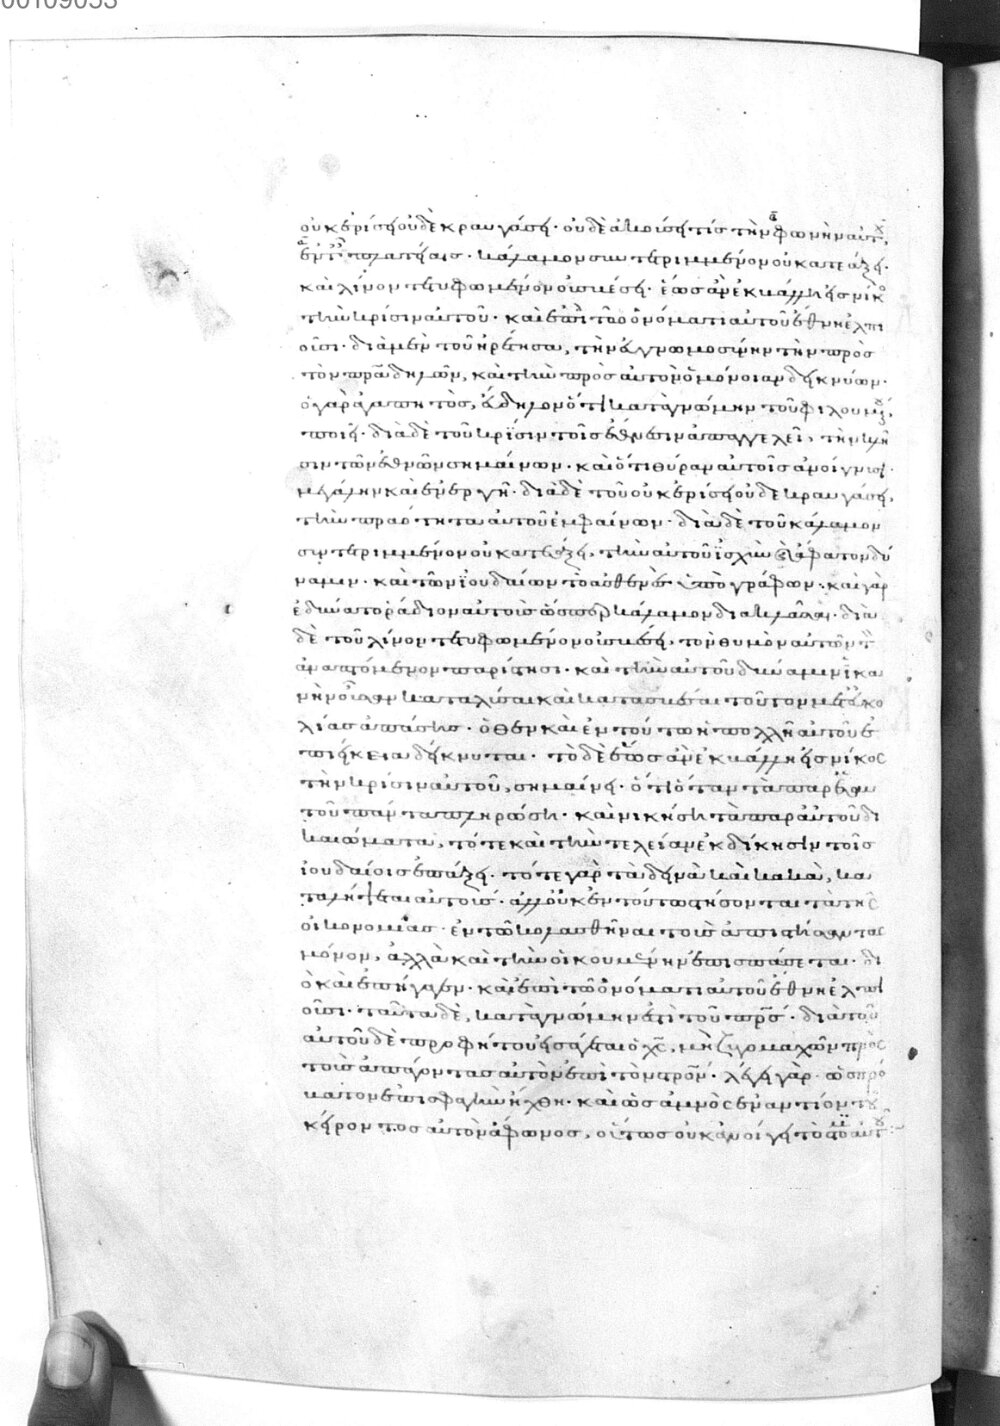 00109053
οὐκ ἐρίσει οὐδὲ κραυγάσει· οὐδὲ ἀκούσει τίς τὴν φωνὴν αὐτοῦ,
ἐν ταῖς πλατείαις· κάλαμον συντετριμμένον οὐ κατεάξει·
καὶ λίνον τετυφωμένον οὐ σβέσει· ἕως ἂν ἐκβάλλη εἰς νῖκος
τὴν κρίσιν αὐτοῦ· καὶ ἐπὶ τῶ ὀνόματι αὐτοῦ ἔθνη ἐλπι
οῦσι· διὰ μὲν τοῦ ἡρέτησα, τὴν εὐγνωμοσύνην τὴν πρὸς
τὸν πρα δηλῶν, καὶ τὴν πρὸς αὐτὸν ὁμόνοιαν δεικνύων·
ὁ γὰρ ἀγαπητὸς, εὔδηλον ὅτι κατὰ γνώμην τοῦ φιλουμένου,
ποιεῖ· διὰ δὲ τοῦ κρίσιν τοῖς ἔθνεσιν ἀπαγγελεῖ, τὴν κλῆ
σιν τῶν ἐθνῶν σημαίνων· καὶ ὅτι θύραν αὐτοῖς ἀνοίγνυσι
μεγάλην καὶ ἐνεργῆ· διὰ δὲ τοῦ οὐκ ἐρίσει οὐδὲ κραυγάσει,
τὴν πραότητα αὐτοῦ ἐμφαίνων· διὰ δὲ τοῦ κάλαμον
συντετριμμένον οὐ κατεάξει, τὴν αὐτοῦ ἰσχὺν καὶ ἄφατον δύ
ναμιν· καὶ τῶν ἰουδαίων τὸ ἀσθενὲς ὑπογράφων· καὶ γὰρ
ἐδύνατο ῥάδιον αὐτοὺς ὥσπερ κάλαμον διακλάσαι· διὰ
δὲ τοῦ λίνον τετυφωμένον οὐ σβέσει, τὸν θυμὸν αὐτῶν τὸν
ἀναπτόμενον παρίστησι· καὶ τὴν αὐτοῦ δύναμιν ἱκα
νὴν οὖσαν καταλῦσαι καὶ κατασβέσαι τοῦτον μετ' εὐκο
λίας ἁπάσης· ὅθεν καὶ ἐν τούτω ἡ πολλὴ αὐτοῦ ἐ
πιείκεια δείκνυται· τὸ δὲ ἕως ἂν ἐκβάλλη εἰς νίκος
τὴν κρίσιν αὐτοῦ, σημαίνει· ὅτι ὅταν τὰ παρ' ἑαυ
τοῦ πάντα πληρώση· καὶ νικήση τὰ παρ' αὐτοῦ δι
καιώματα, τότε καὶ τὴν τελείαν ἐκδίκησιν τοῖς
ἰουδαίοις ἐπάξει· τότε γὰρ τὰ δεινὰ καὶ κακὰ, κα
ταλήψεται αὐτούς· ἀλλ' οὐκ ἐν τούτω στήσονται τὰ τῆς
οἰκονομίας· ἐν τῶ κολασθῆναι τοὺς ἀπιστήσαντας
μόνον, ἀλλὰ καὶ τὴν οἰκουμένην ἐπισπάσεται· δι
ὸ καὶ ἐπήγαγεν· καὶ ἐπὶ τῶ ὀνόματι αὐτοῦ ἔθνη ἐλπι
οῦσι· ταῦτα δὲ, κατὰ γνώμην ἐστὶ τοῦ πρς· διὰ τοῦ
αὐτοῦ δὲ προφήτου εἰσάγεται ὁ χς, μὴ ζυγομαχῶν πρὸς
τοὺς ἀπάγοντας αὐτὸν ἐπὶ τὸν σρον· λέγει γὰρ· ὡς πρό
βατον ἐπὶ σφαγὴν ἤχθη· καὶ ὡς ἀμνὸς ἐναντίον τοῦ
κείροντος αὐτὸν ἄφωνος, οὕτως οὐκ ἀνοίγει τὸ στόμα αὐτοῦ: